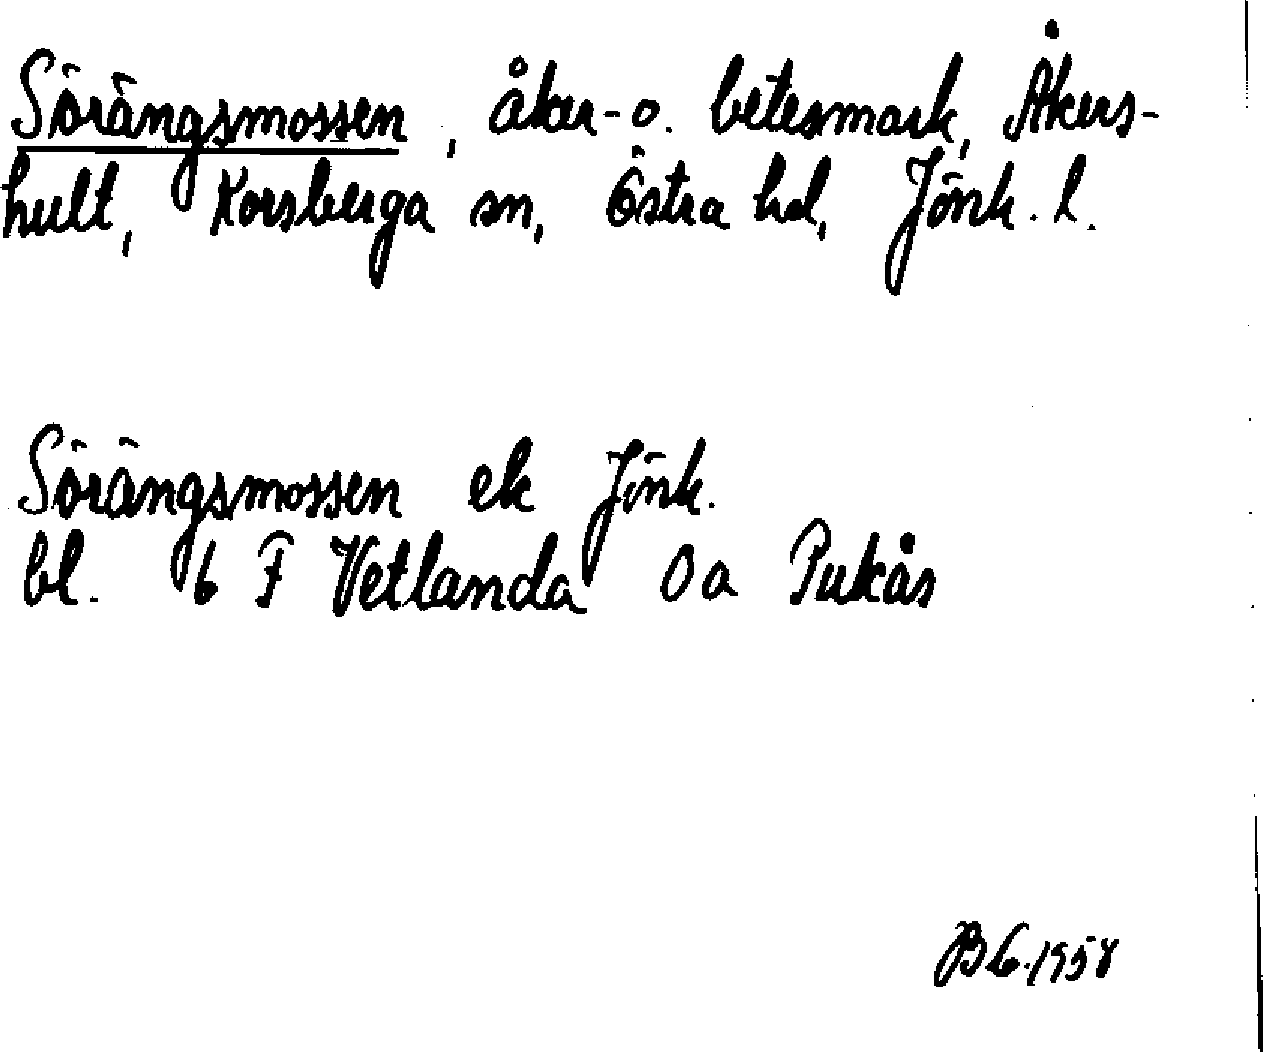 Sörängsmossen, åker- o. betesmark, Åkers-
hult, Korsberga sn, Östra hd, Jönk. l.
Sörängsmossen ek Jönk.
bl. 6 F Vetlanda 0a Pukås
BG. 1958